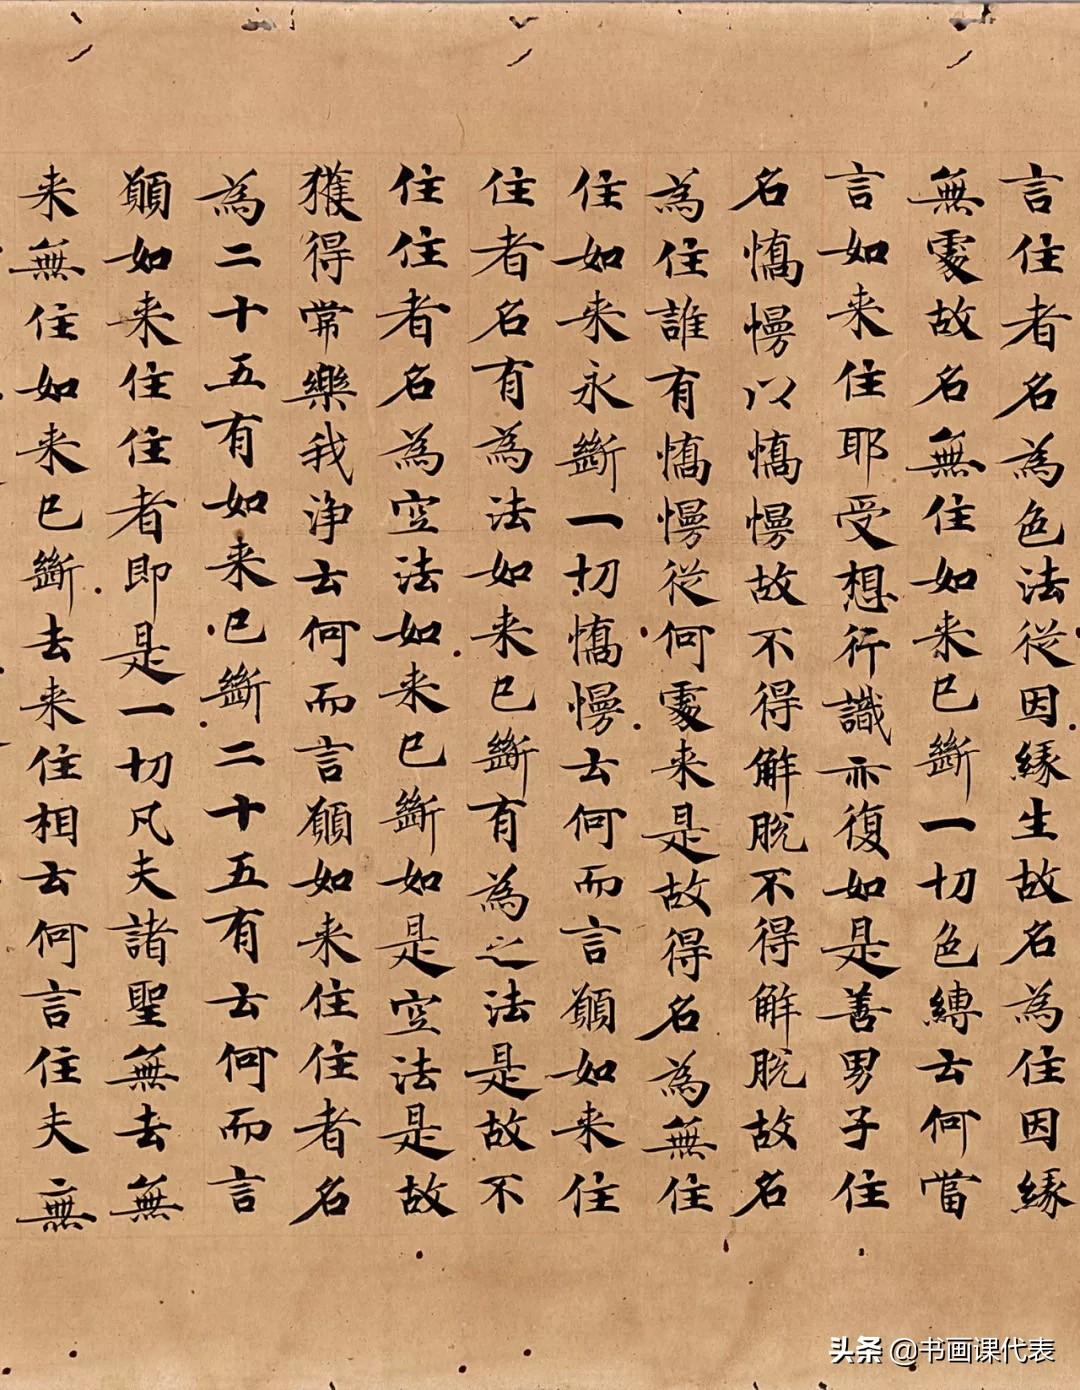 言住者名為色法従因縁生故名為住因縁
無處故名無住如来已斷一切色縛云何當
言如来住耶受想行識亦復如是善男子住
名憍慢以憍慢故不得解脱不得解脱故名
為住誰有憍慢従何處来是故得名為無住
住如来永斷一切憍慢云何而言願如来住
住者名有為法如来已斷有為之法是故不
住住者名為空法如来已斷如是空法是故
獲得常樂我浄云何而言願如来住住者名
為二十五有如来已斷二十五有云何而言
願如来住住者即是一切凡夫諸聖無去無
来無住如来已斷去来住相云何言住夫無
头条 @书画课代表